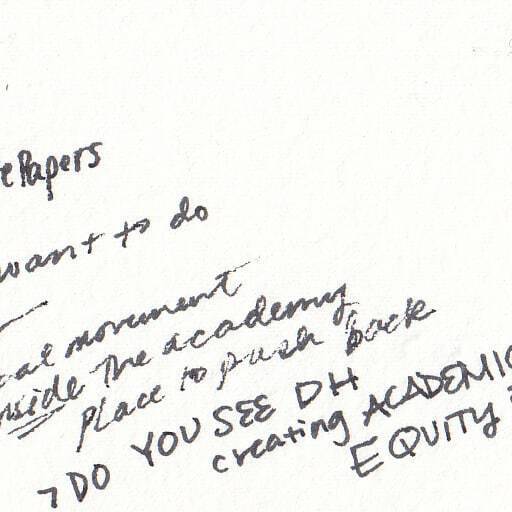 ePapers
want to do
cal movement
inside the academy
place to push back
→ DO YOU SEE DH
creating ACADEMIC
EQUITY?